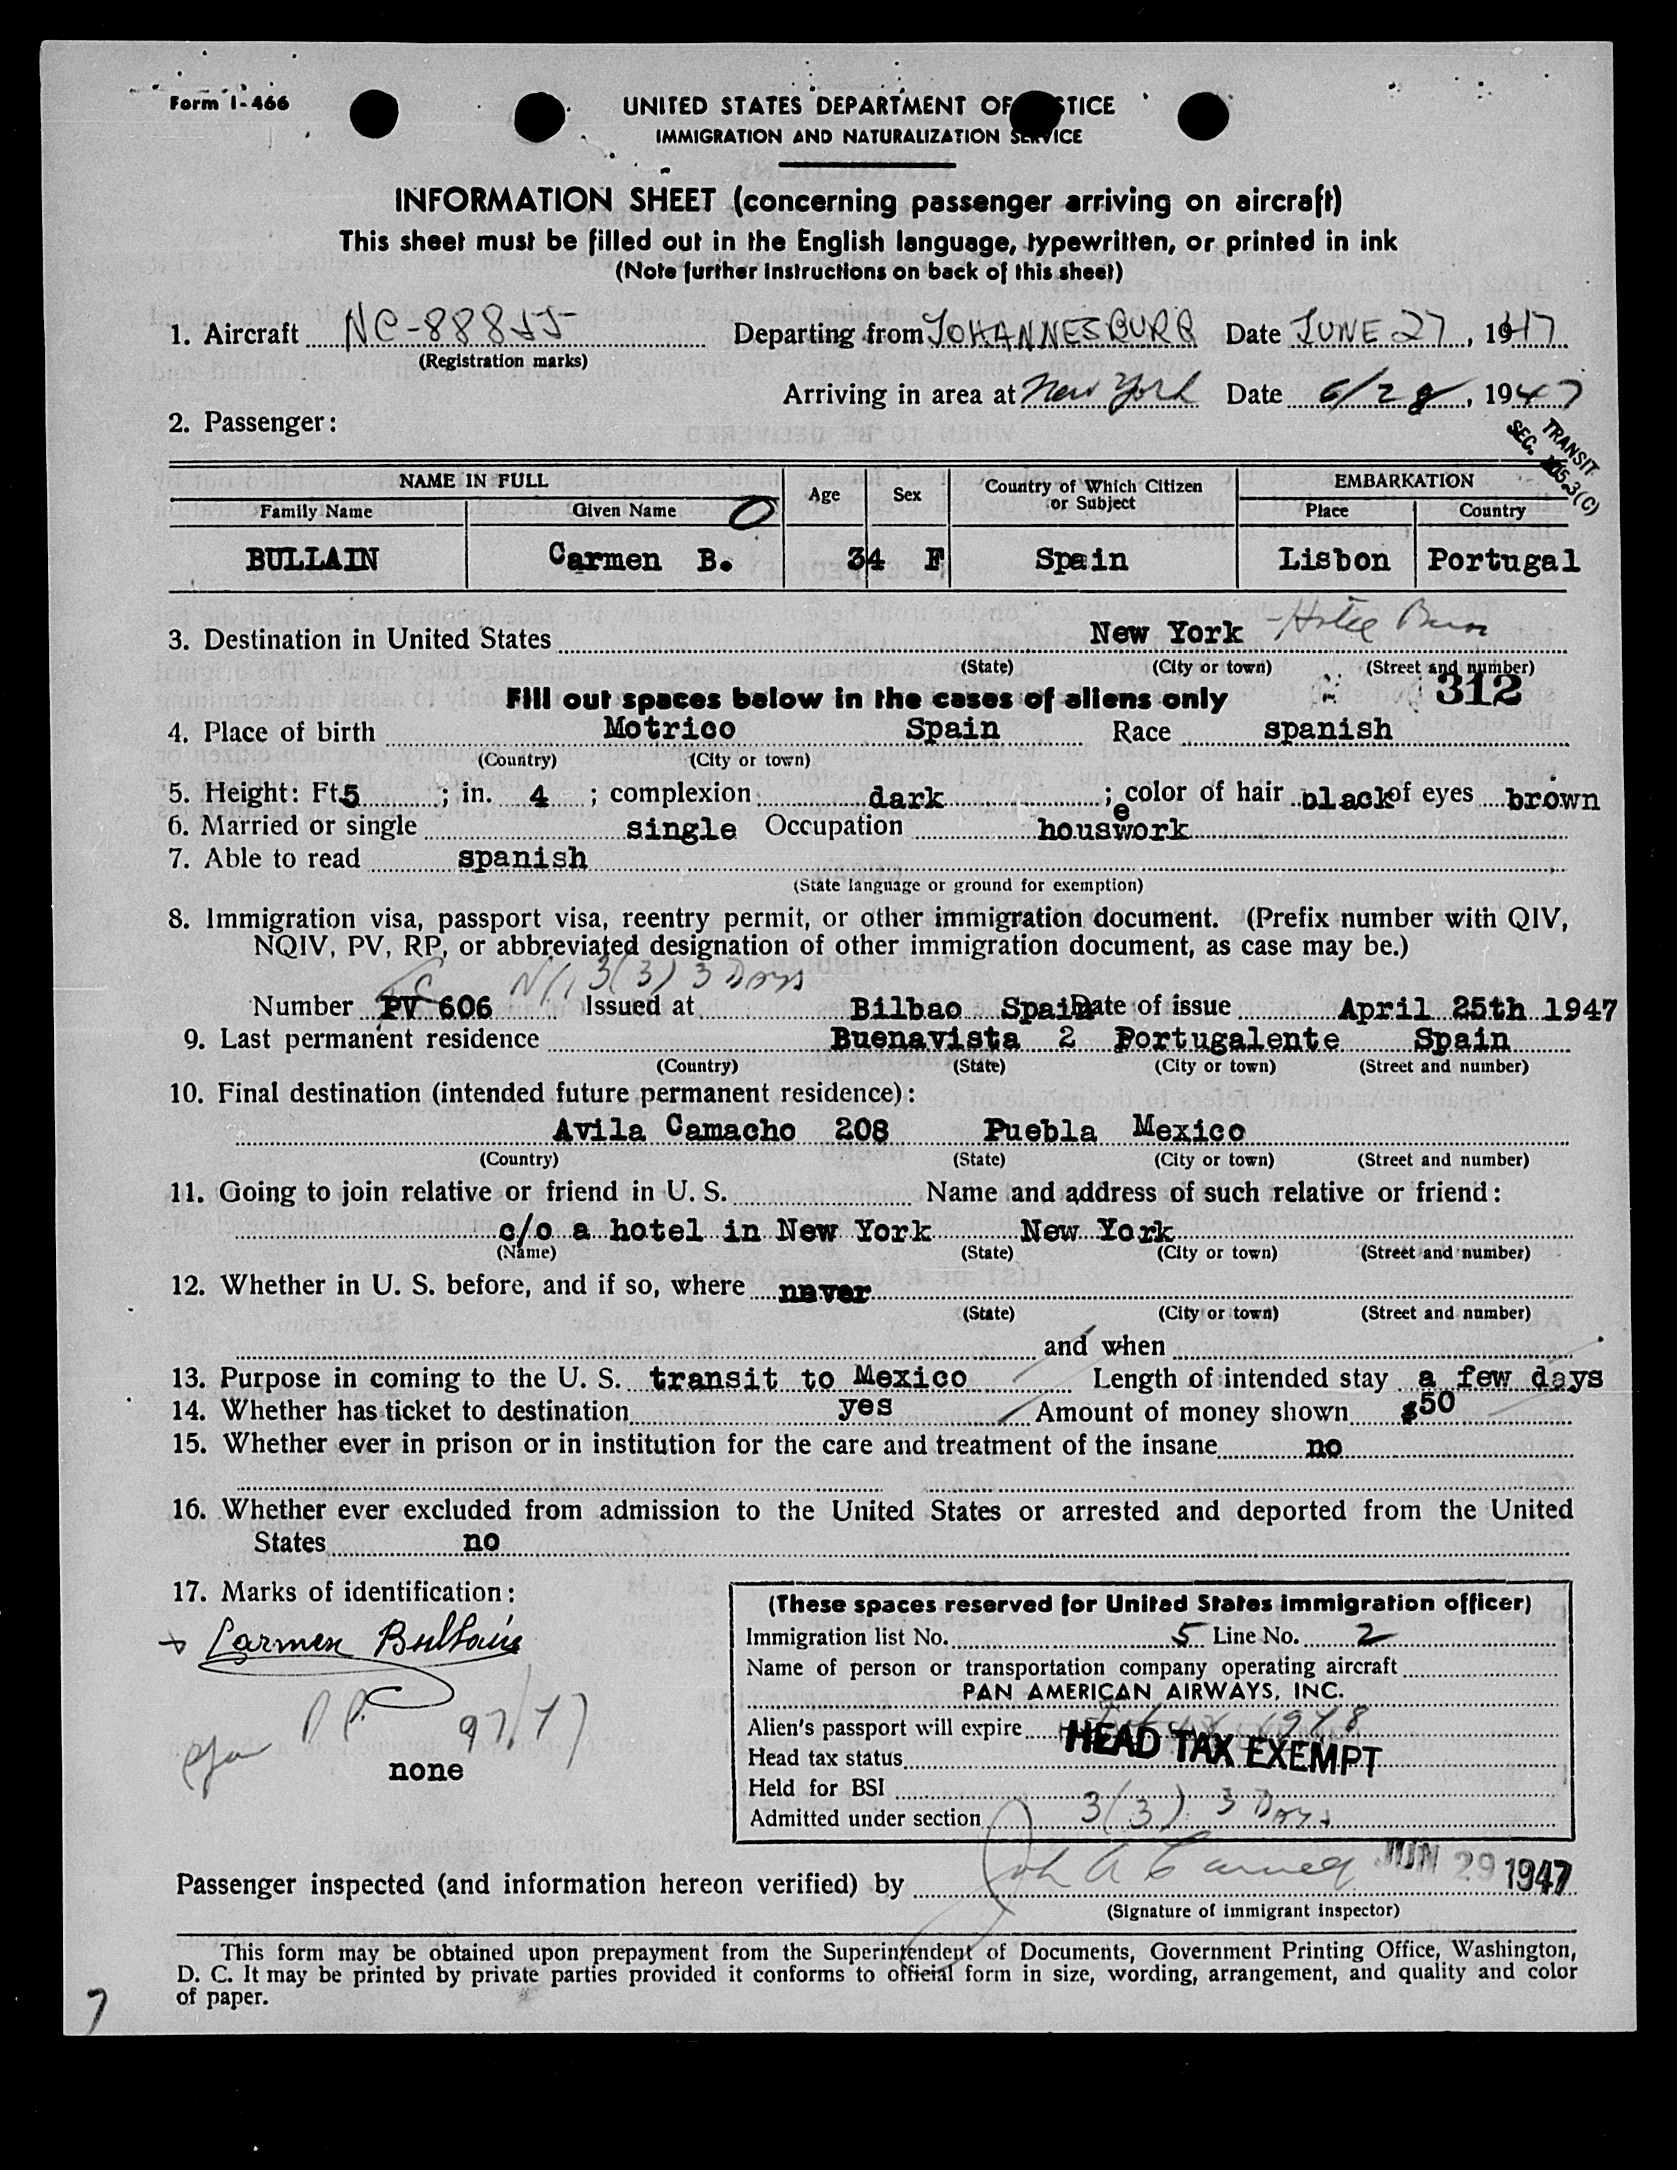 Form I-466
UNITED STATES DEPARTMENT OF STICE
IMMIGRATION AND NATURALIZATION SERVICE
INFORMATION SHEET (concerning passenger arriving on aircraft)
This sheet must be filled out in the English language, typewritten, or printed in ink
(Note further instructions on back of this sheet)
1. Aircraft NC-88855 Departing from JOHANNESBURG Date JUNE 27, 1947
(Registration marks)
Arriving in area at New York Date 6/28, 1947
2. Passenger:
TRANSIT
SEC. 3(C)
NAME IN FULL Age Sex Country of Which Citizen or Subject EMBARKATION
Family Name Given Name Place Country
BULLAIN Carmen B. 34 F Spain Lisbon Portugal
3. Destination in United States New York - Hotel
(State) (City or town) (Street and number)
Fill out spaces below in the cases of aliens only 312
4. Place of birth Motrico Spain Race spanish
(Country) (City or town)
5. Height: Ft. 5; in. 4; complexion dark; color of hair black of eyes brown
6. Married or single single Occupation housework
7. Able to read spanish
(State language or ground for exemption)
8. Immigration visa, passport visa, reentry permit, or other immigration document. (Prefix number with QIV,
NQIV, PV, RP, or abbreviated designation of other immigration document, as case may be.)
3(3) 3 Days
Number PV 606 Issued at Bilbao Spain Date of issue April 25th 1947
9. Last permanent residence Buenavista 2 Portugalente Spain
(Country) (State) (City or town) (Street and number)
10. Final destination (intended future permanent residence):
Avila Camacho 208 Puebla Mexico
(Country) (State) (City or town) (Street and number)
11. Going to join relative or friend in U. S. Name and address of such relative or friend:
c/o a hotel in New York New York
(Name) (State) (City or town) (Street and number)
12. Whether in U. S. before, and if so, where never
(State) (City or town) (Street and number)
and when
13. Purpose in coming to the U. S. transit to Mexico Length of intended stay a few days
14. Whether has ticket to destination yes Amount of money shown $50
15. Whether ever in prison or in institution for the care and treatment of the insane no
16. Whether ever excluded from admission to the United States or arrested and deported from the United
States no
17. Marks of identification:
Carmen Bullain
97/47
none
(These spaces reserved for United States immigration officer)
Immigration list No. 5 Line No. 2
Name of person or transportation company operating aircraft
PAN AMERICAN AIRWAYS, INC.
Alien's passport will expire 1948
Head tax status HEAD TAX EXEMPT
Held for BSI
Admitted under section 3(3) 3 Days
Passenger inspected (and information hereon verified) by JUN 29 1947
(Signature of immigrant inspector)
This form may be obtained upon prepayment from the Superintendent of Documents, Government Printing Office, Washington,
D. C. It may be printed by private parties provided it conforms to official form in size, wording, arrangement, and quality and color
of paper.
7